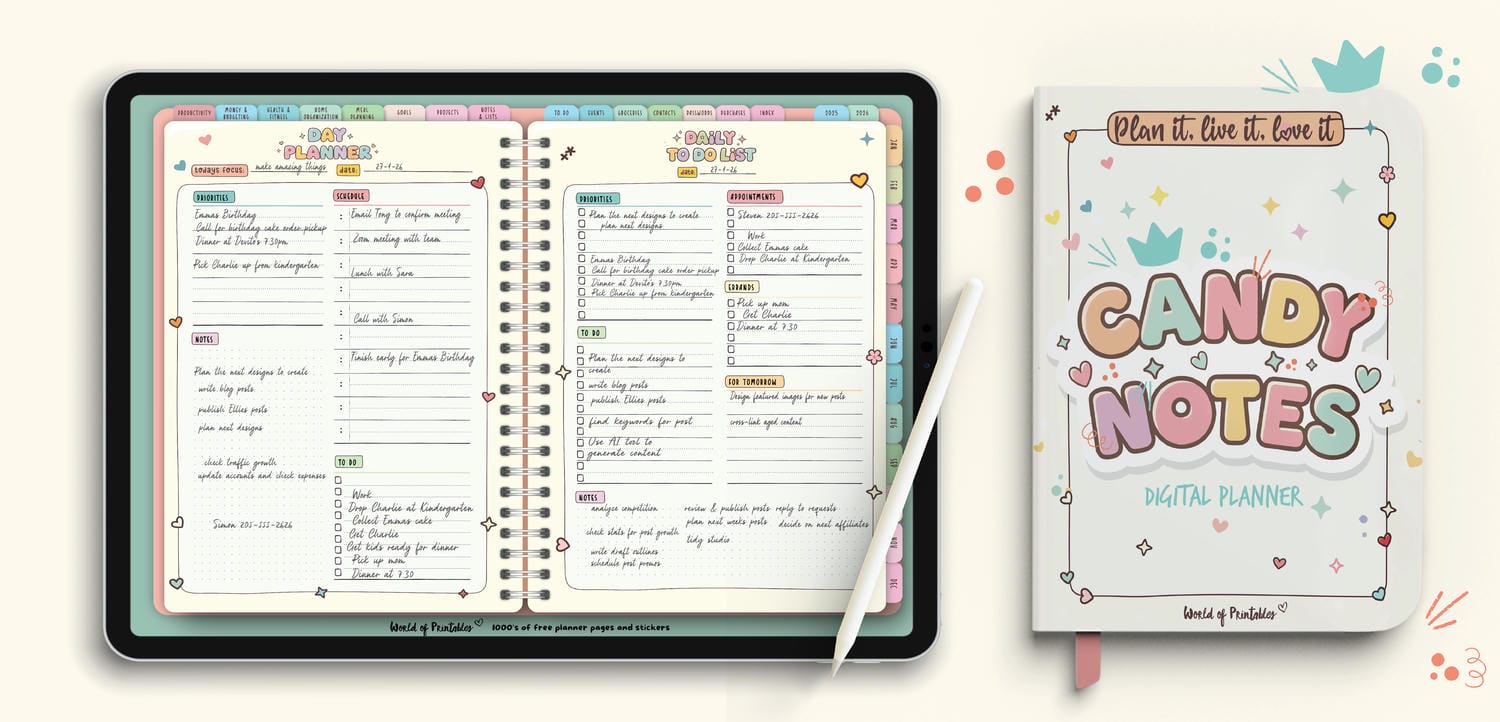 PRODUCTIVITY
MONEY & BUDGETING
HEALTH & FITNESS
HOME ORGANIZATION
MEAL PLANNING
GOALS
PROJECTS
NOTES & LISTS
TO DO
EVENTS
GROCERIES
CONTACTS
PASSWORDS
PURCHASES
INDEX
2025
2026
DAY
PLANNER
todays focus: make amazing things
date: 27-1-26
PRIORITIES
Emmas Birthday
Call for birthday cake order pickup
Dinner at Devito's 7.30pm
Pick Charlie up from kindergarten
NOTES
Plan the next designs to create
write blog posts
publish Ellies posts
plan next designs
check traffic growth
update accounts and check expenses
Simon 205-555-2626
SCHEDULE
: Email Tony to confirm meeting
: Zoom meeting with team
:
Lunch with Sara
:
:
Call with Simon
:
: Finish early for Emmas Birthday
:
:
:
TO DO
Work
Drop Charlie at Kindergarten
Collect Emmas cake
Get Charlie
Get kids ready for dinner
Pick up mom
Dinner at 7.30
DAILY
TO DO LIST
date: 27-1-26
PRIORITIES
Plan the next designs to create
plan next designs
Emmas Birthday
Call for birthday cake order pickup
Dinner at Devito's 7.30pm
Pick Charlie up from kindergarten
TO DO
Plan the next designs to
create
write blog posts
publish Ellies posts
find keywords for post
Use AI tool to
generate content
APPOINTMENTS
Steven 205-555-2626
Work
Collect Emmas cake
Drop Charlie at Kindergarten
ERRANDS
Pick up mom
Get Charlie
Dinner at 7.30
FOR TOMORROW
Design featured images for new posts
cross-link aged content
NOTES
analyze competition
check stats for post growth
write draft outlines
schedule post promos
review & publish posts
plan next weeks posts
tidy studio
reply to requests
decide on next affiliates
JAN
FEB
MAR
APR
MAY
JUN
JUL
AUG
SEP
NOV
DEC
World of Printables
1000's of free planner pages and stickers
Plan it, live it, love it
CANDY
NOTES
DIGITAL PLANNER
World of Printables